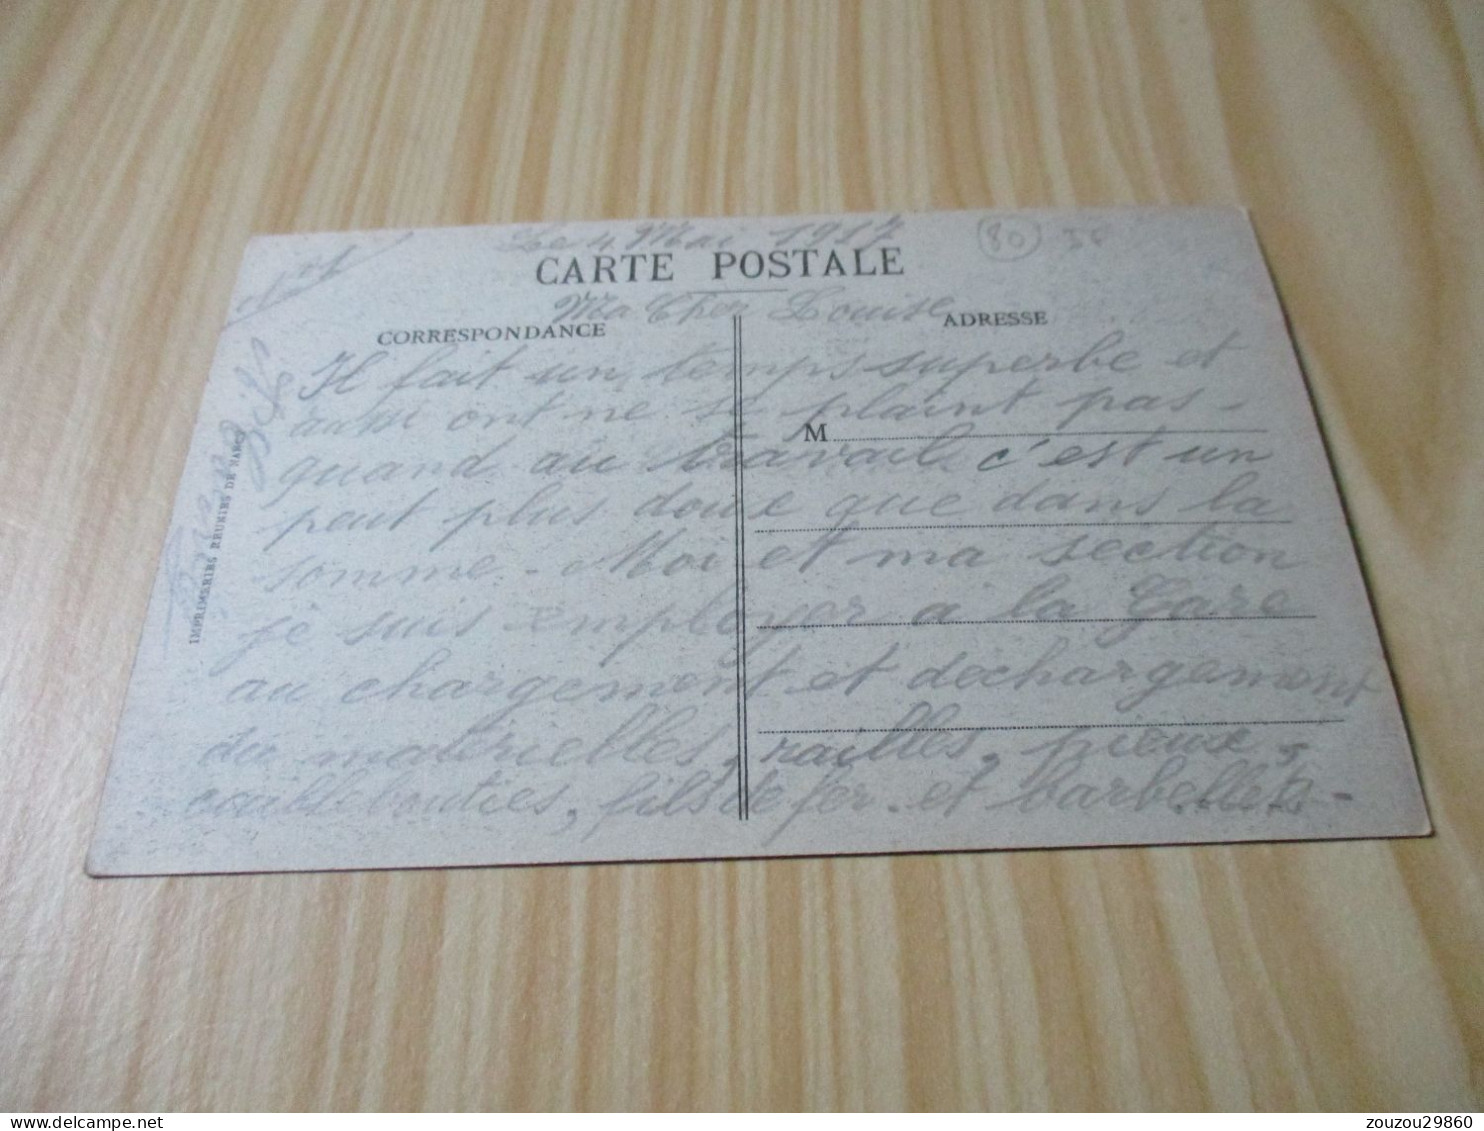 Le 4 Mai 1917
80
CARTE POSTALE
Ma Cher Louise
CORRESPONDANCE
ADRESSE
Il fait un temps superbe et
aussi ont ne se plaint pas -
M
quand au travail c'est un
peut plus doux que dans la
somme - Moi et ma section
je suis employer a la Gare
au chargement et dechargement
du matrielles, railles, pieux,
bouties, fils de fer. et barbellets -
IMPRIMERIES REUNIES DE NANCY
zouzou29860